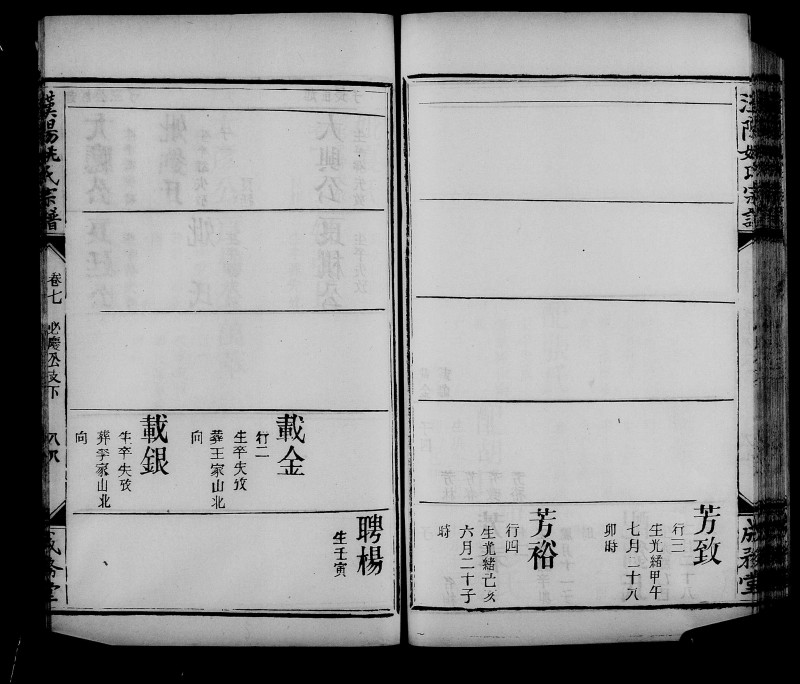 芳致
行三
生光緒甲午
七月二十八
卯時
芳裕
行四
生光緒己亥
六月二十子
時
聘楊
生壬寅
載金
行二
生卒失攷
葬王家山北
向
載銀
生卒失攷
葬李家山北
向
漢陽姚氏宗譜
卷七
必慶公支下
成務堂